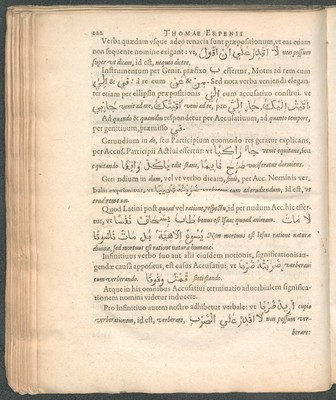 222 THOMAE ERPENII
Verba quædam vsque adeò tenacia sunt præpositionum, vt eas etiam
non sequente nomine exigant: vt, لا اقدر علي ان اقول non possum
super vt dicam, id est, nequeo dicere.
Instrumentum per Genit. præfixo ب effertur, Motus ad rem cum
الي & في: A re cum عن & من. Sed nota verba venienda elegan-
ter etiam per ellipsin præpositionis الي cum accusatiuo construi. vt
اتيتك venit ad me, veni ad te, pro
Ad quando & quamdiu respondetur per Accusatiuum, ad quanto tempore,
per genitiuum, præmisso في.
Gerundium in do, seu Participium quomodo res geratur explicans,
per Accus. Participij Actiui effertur: vt جا راكبا venit equitando,
edit stans, vociferatur dormiens.
Gerundium in dum, vel vt verbo dicam, finis, per Acc. Nominis ver-
balis exprimitur, vt cum ad erudiendum, id est, vt
erudirem eum.
Quod Latini post quoad vel ratione, respectu, id per nudum Acc. hic effer-
tur, vt طاب نفسا bonus est Isaac quoad animam. لا مات
يسوع بل مات Non mortuus est Iesus ratione natura
diuina, sed mortuus est ratione natura humana.
Infinitiuus verbo suo aut alij eiusdem notionis, significationis au-
gendæ causâ appositus, est casus Accusatiui, vt ضربته ضربا verberaui
eum verberando. قمت وقوفا steti stando.
Atque in his omnibus Accusatiui terminatio aduerbialem significa-
tionem nomini videtur inducere.
Pro Infinitiuo autem nostro adhibetur verbale: vt اريد ضربا cupio
verberationem, id est, verberare, لا اقدر علي الضرب non possum ver-
berare: